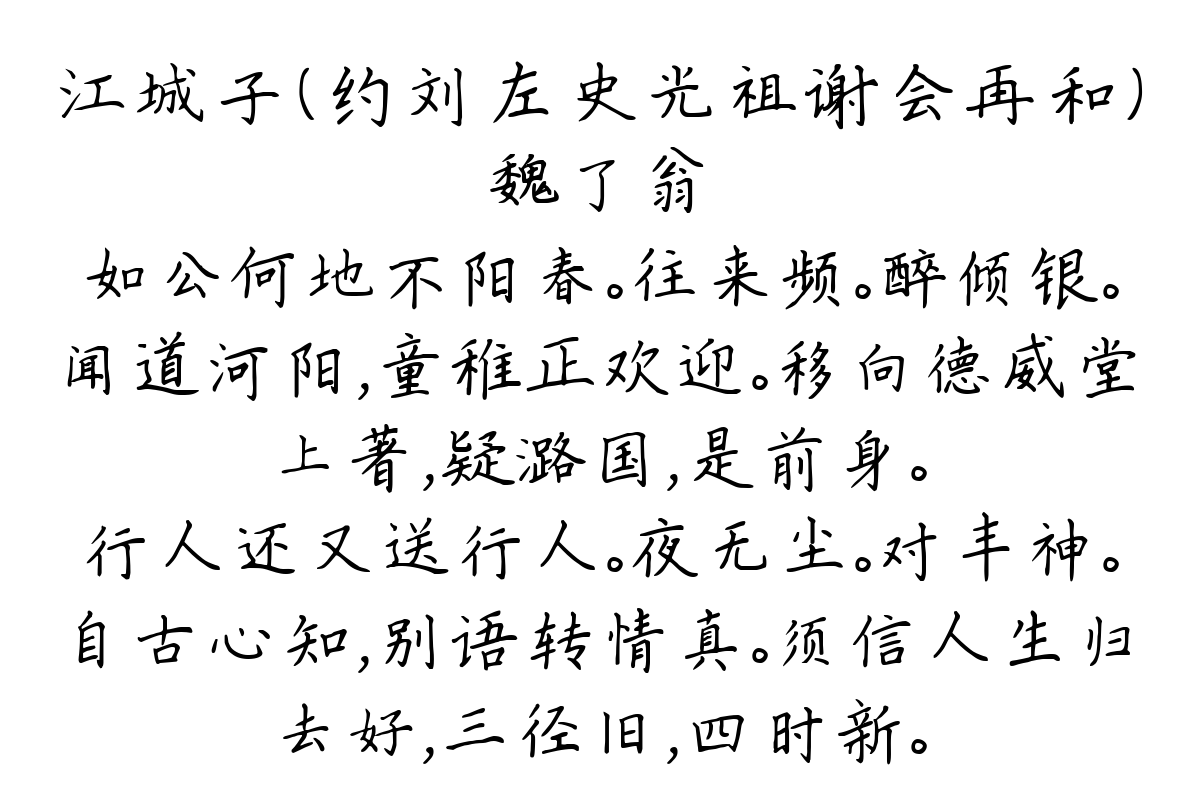 江城子(约刘左史光祖谢会再和)
魏了翁
如公何地不阳春。往来频。醉倾银。
闻道河阳,童稚正欢迎。移向德威堂
上著,疑潞国,是前身。
行人还又送行人。夜无尘。对丰神。
自古心知,别语转情真。须信人生归
去好,三径旧,四时新。